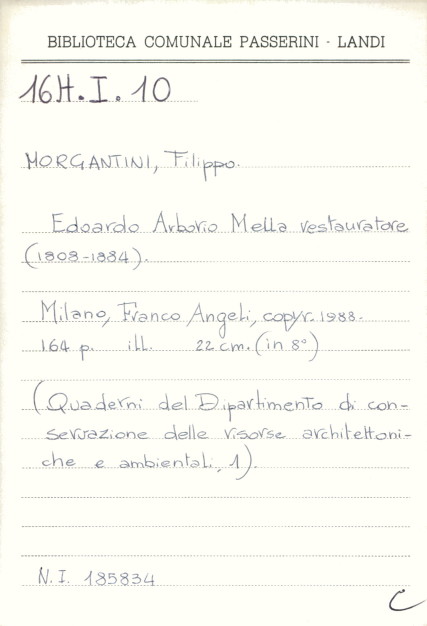 BIBLIOTECA COMUNALE PASSERINI - LANDI
16H.I.10
MORGANTINI, Filippo.
Edoardo Arborio Mella restauratore
(1808-1884).
Milano, Franco Angeli, copyr. 1988.
164 p. ill. 22 cm. (in 8°)
(Quaderni del Dipartimento di con-
servazione delle risorse architettoni-
che e ambientali, 1).
N. I. 185834
C